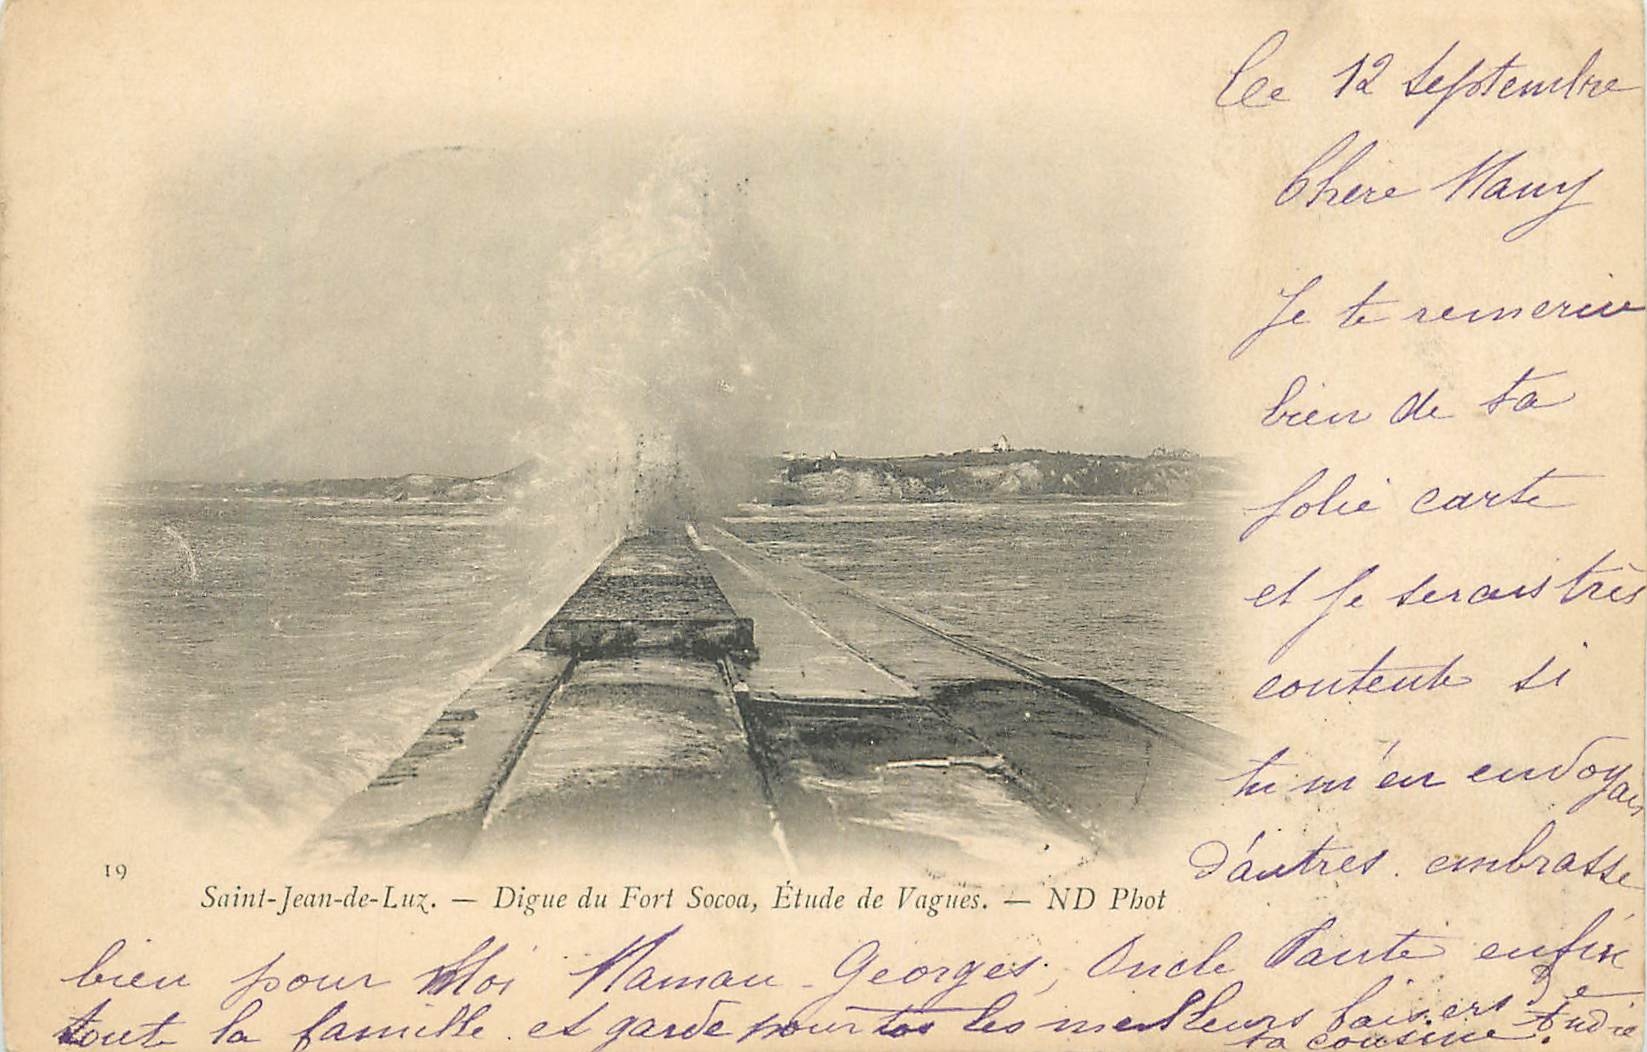 Ce 12 septembre
Chere Many
Je te remercie
bien de ta
jolie carte
et je serais très
contente si
tu m'en envoyais
d'autres. embrasse
19
Saint-Jean-de-Luz. — Digue du Fort Socoa, Étude de Vagues. — ND Phot
bien pour Moi Maman Georges, Oncle Tante enfin
toute la famille et garde pour toi les meilleurs baisers De
ta cousine